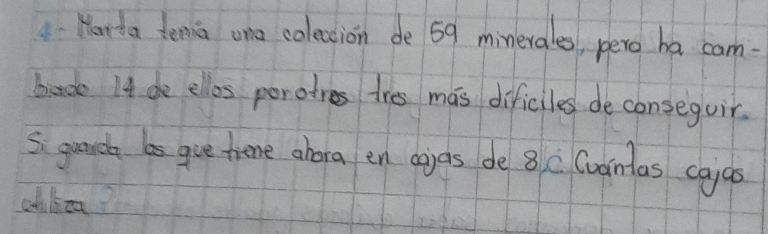 4- Marta tenía una colección de 59 minerales, pero ha cam-
biado 14 de ellos porotros tres más dificiles de conseguir.
Si guarda los que tiene ahora en cajas de 8 ¿ Cuántas cajas
utiliza?